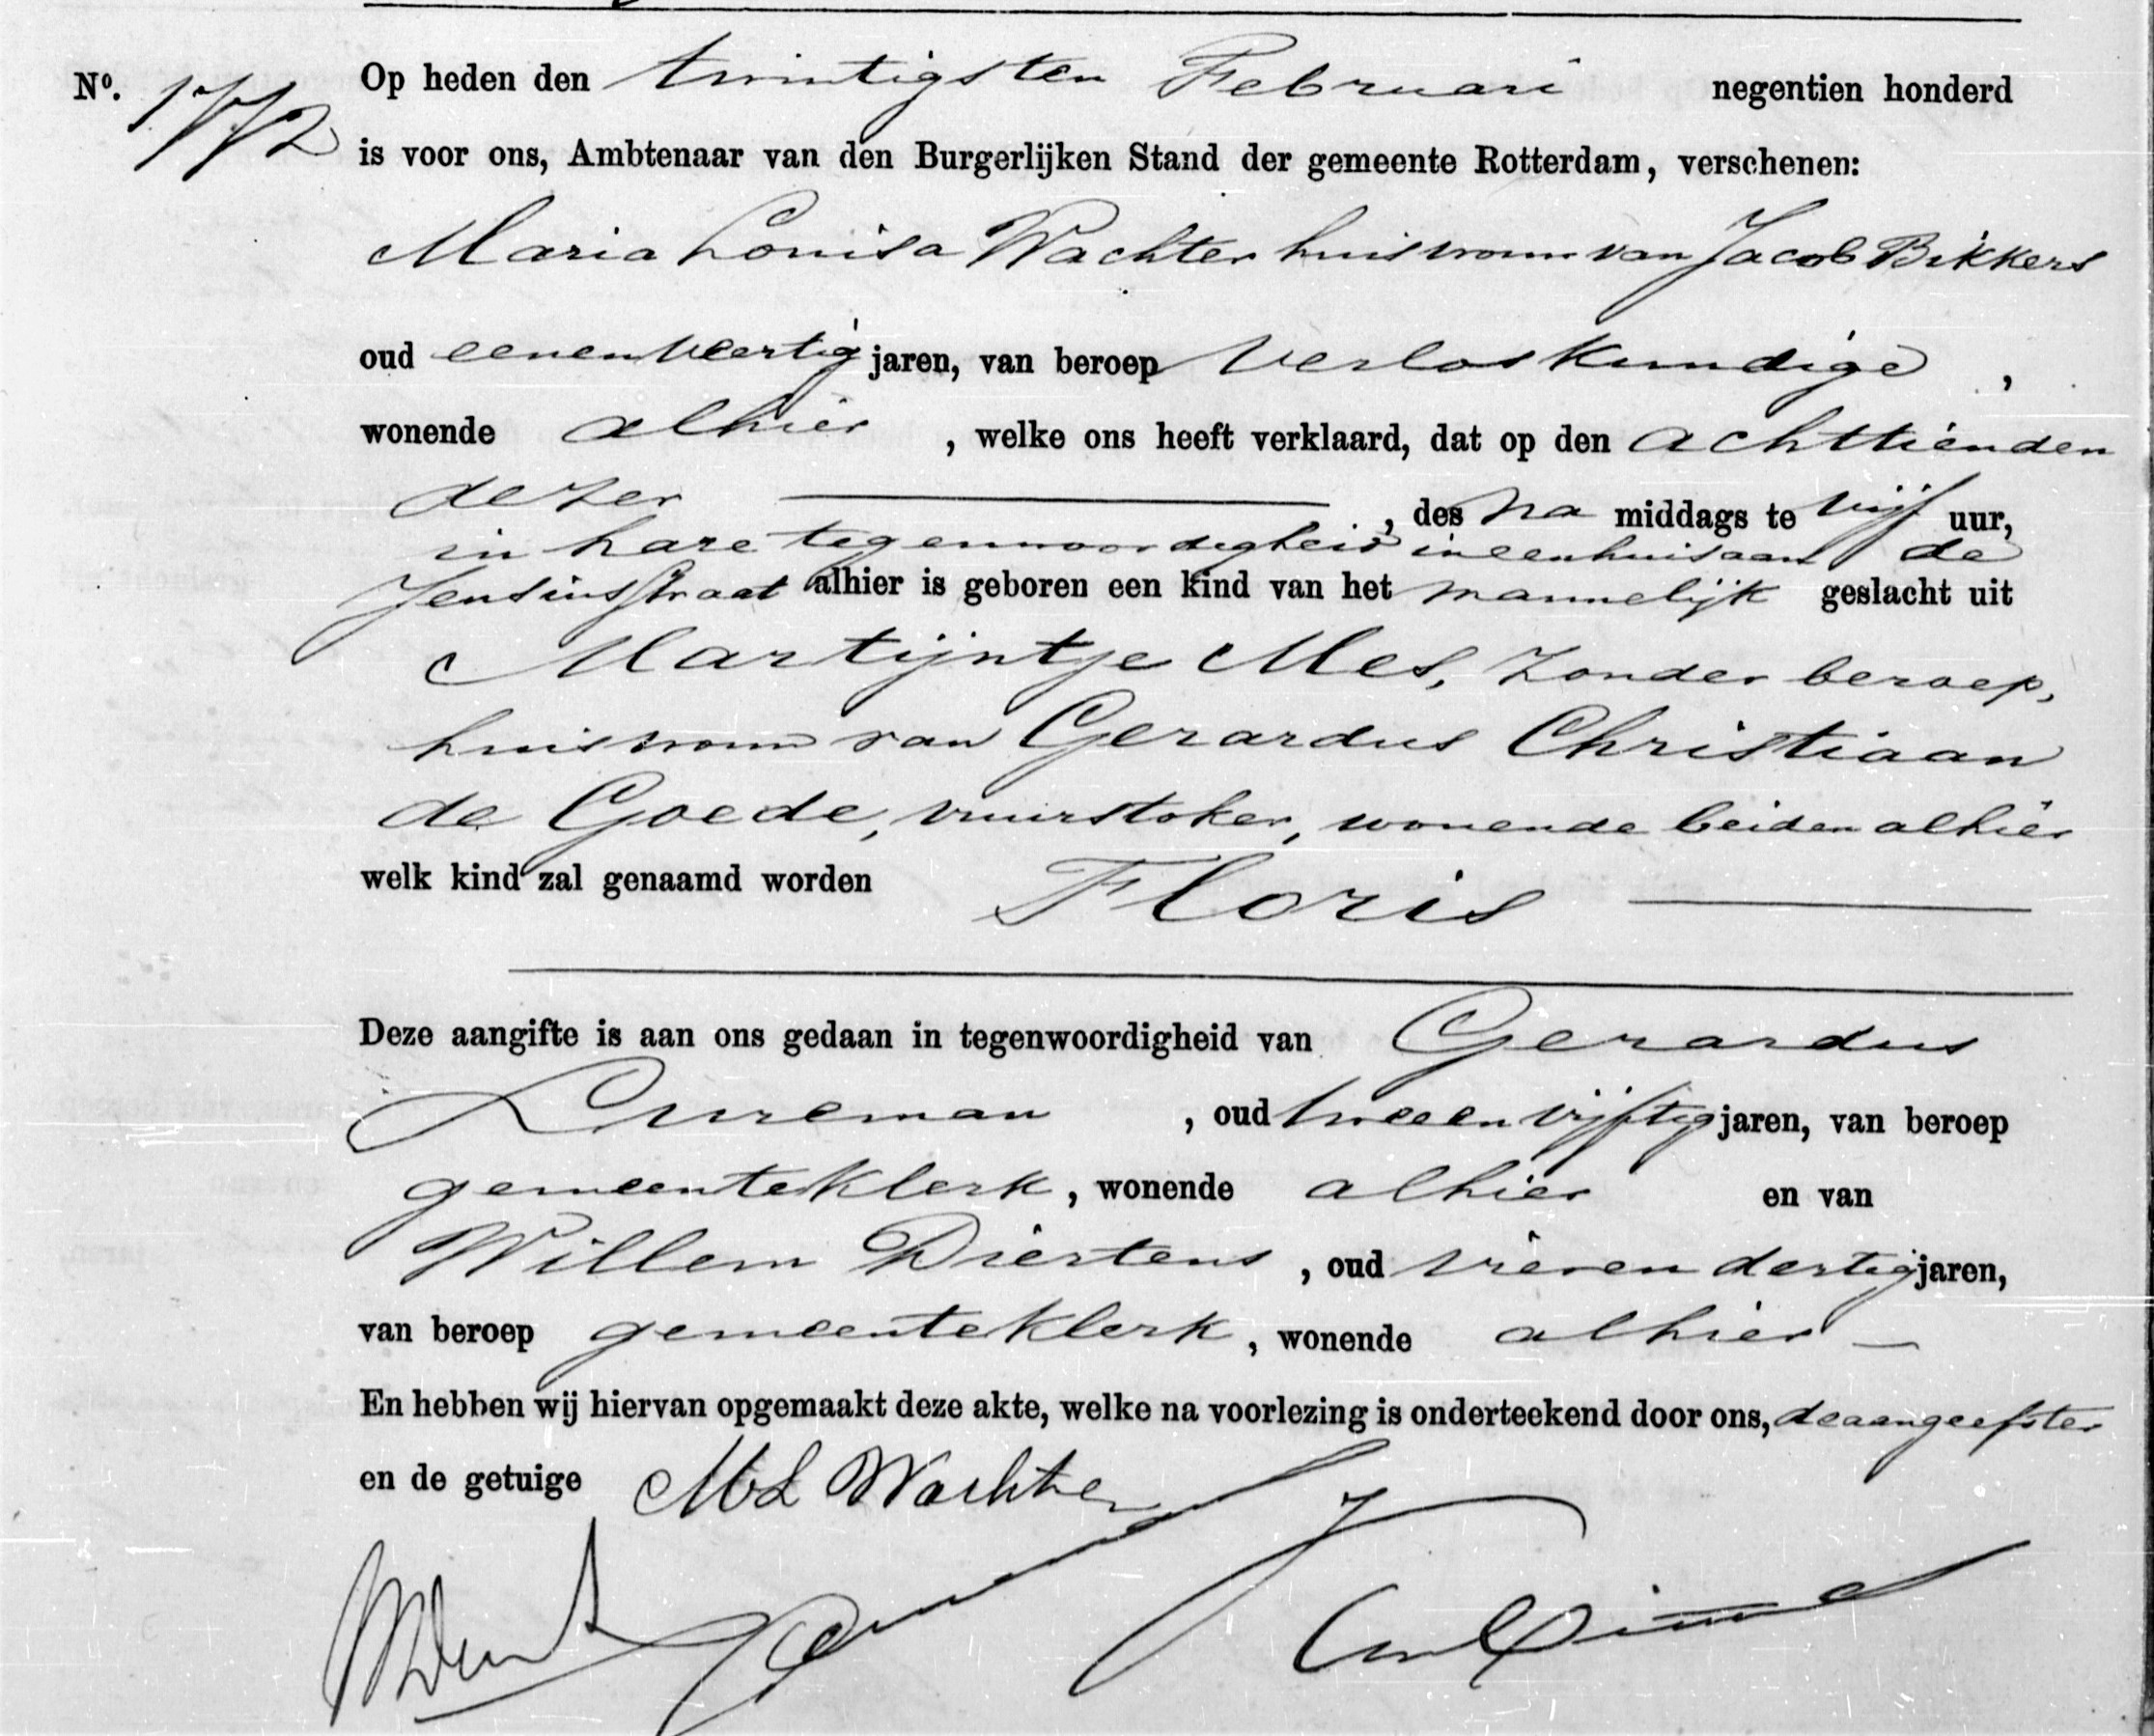 Nº. 1772
Op heden den twintigsten Februari negentien honderd
is voor ons, Ambtenaar van den Burgerlijken Stand der gemeente Rotterdam, verschenen:
Maria Louisa Wachter huisvrouw van Jacob Bikkers
oud eenenveertig jaren, van beroep verloskundige,
wonende alhier, welke ons heeft verklaard, dat op den achttienden
dezer, des na middags te vijf uur,
in hare tegenwoordigheid in een huis aan de
Jensiusstraat alhier is geboren een kind van het mannelijk geslacht uit
Martijntje Mes, zonder beroep,
huisvrouw van Gerardus Christiaan
de Goede, vuurstoker, wonende beiden alhier
welk kind zal genaamd worden Floris
Deze aangifte is aan ons gedaan in tegenwoordigheid van Gerardus
Lureman, oud tweeenvijftig jaren, van beroep
gemeenteklerk, wonende alhier en van
Willem Diertens, oud vierendertig jaren,
van beroep gemeenteklerk, wonende alhier
En hebben wij hiervan opgemaakt deze akte, welke na voorlezing is onderteekend door ons, de aangeefster
en de getuige ML Wachter